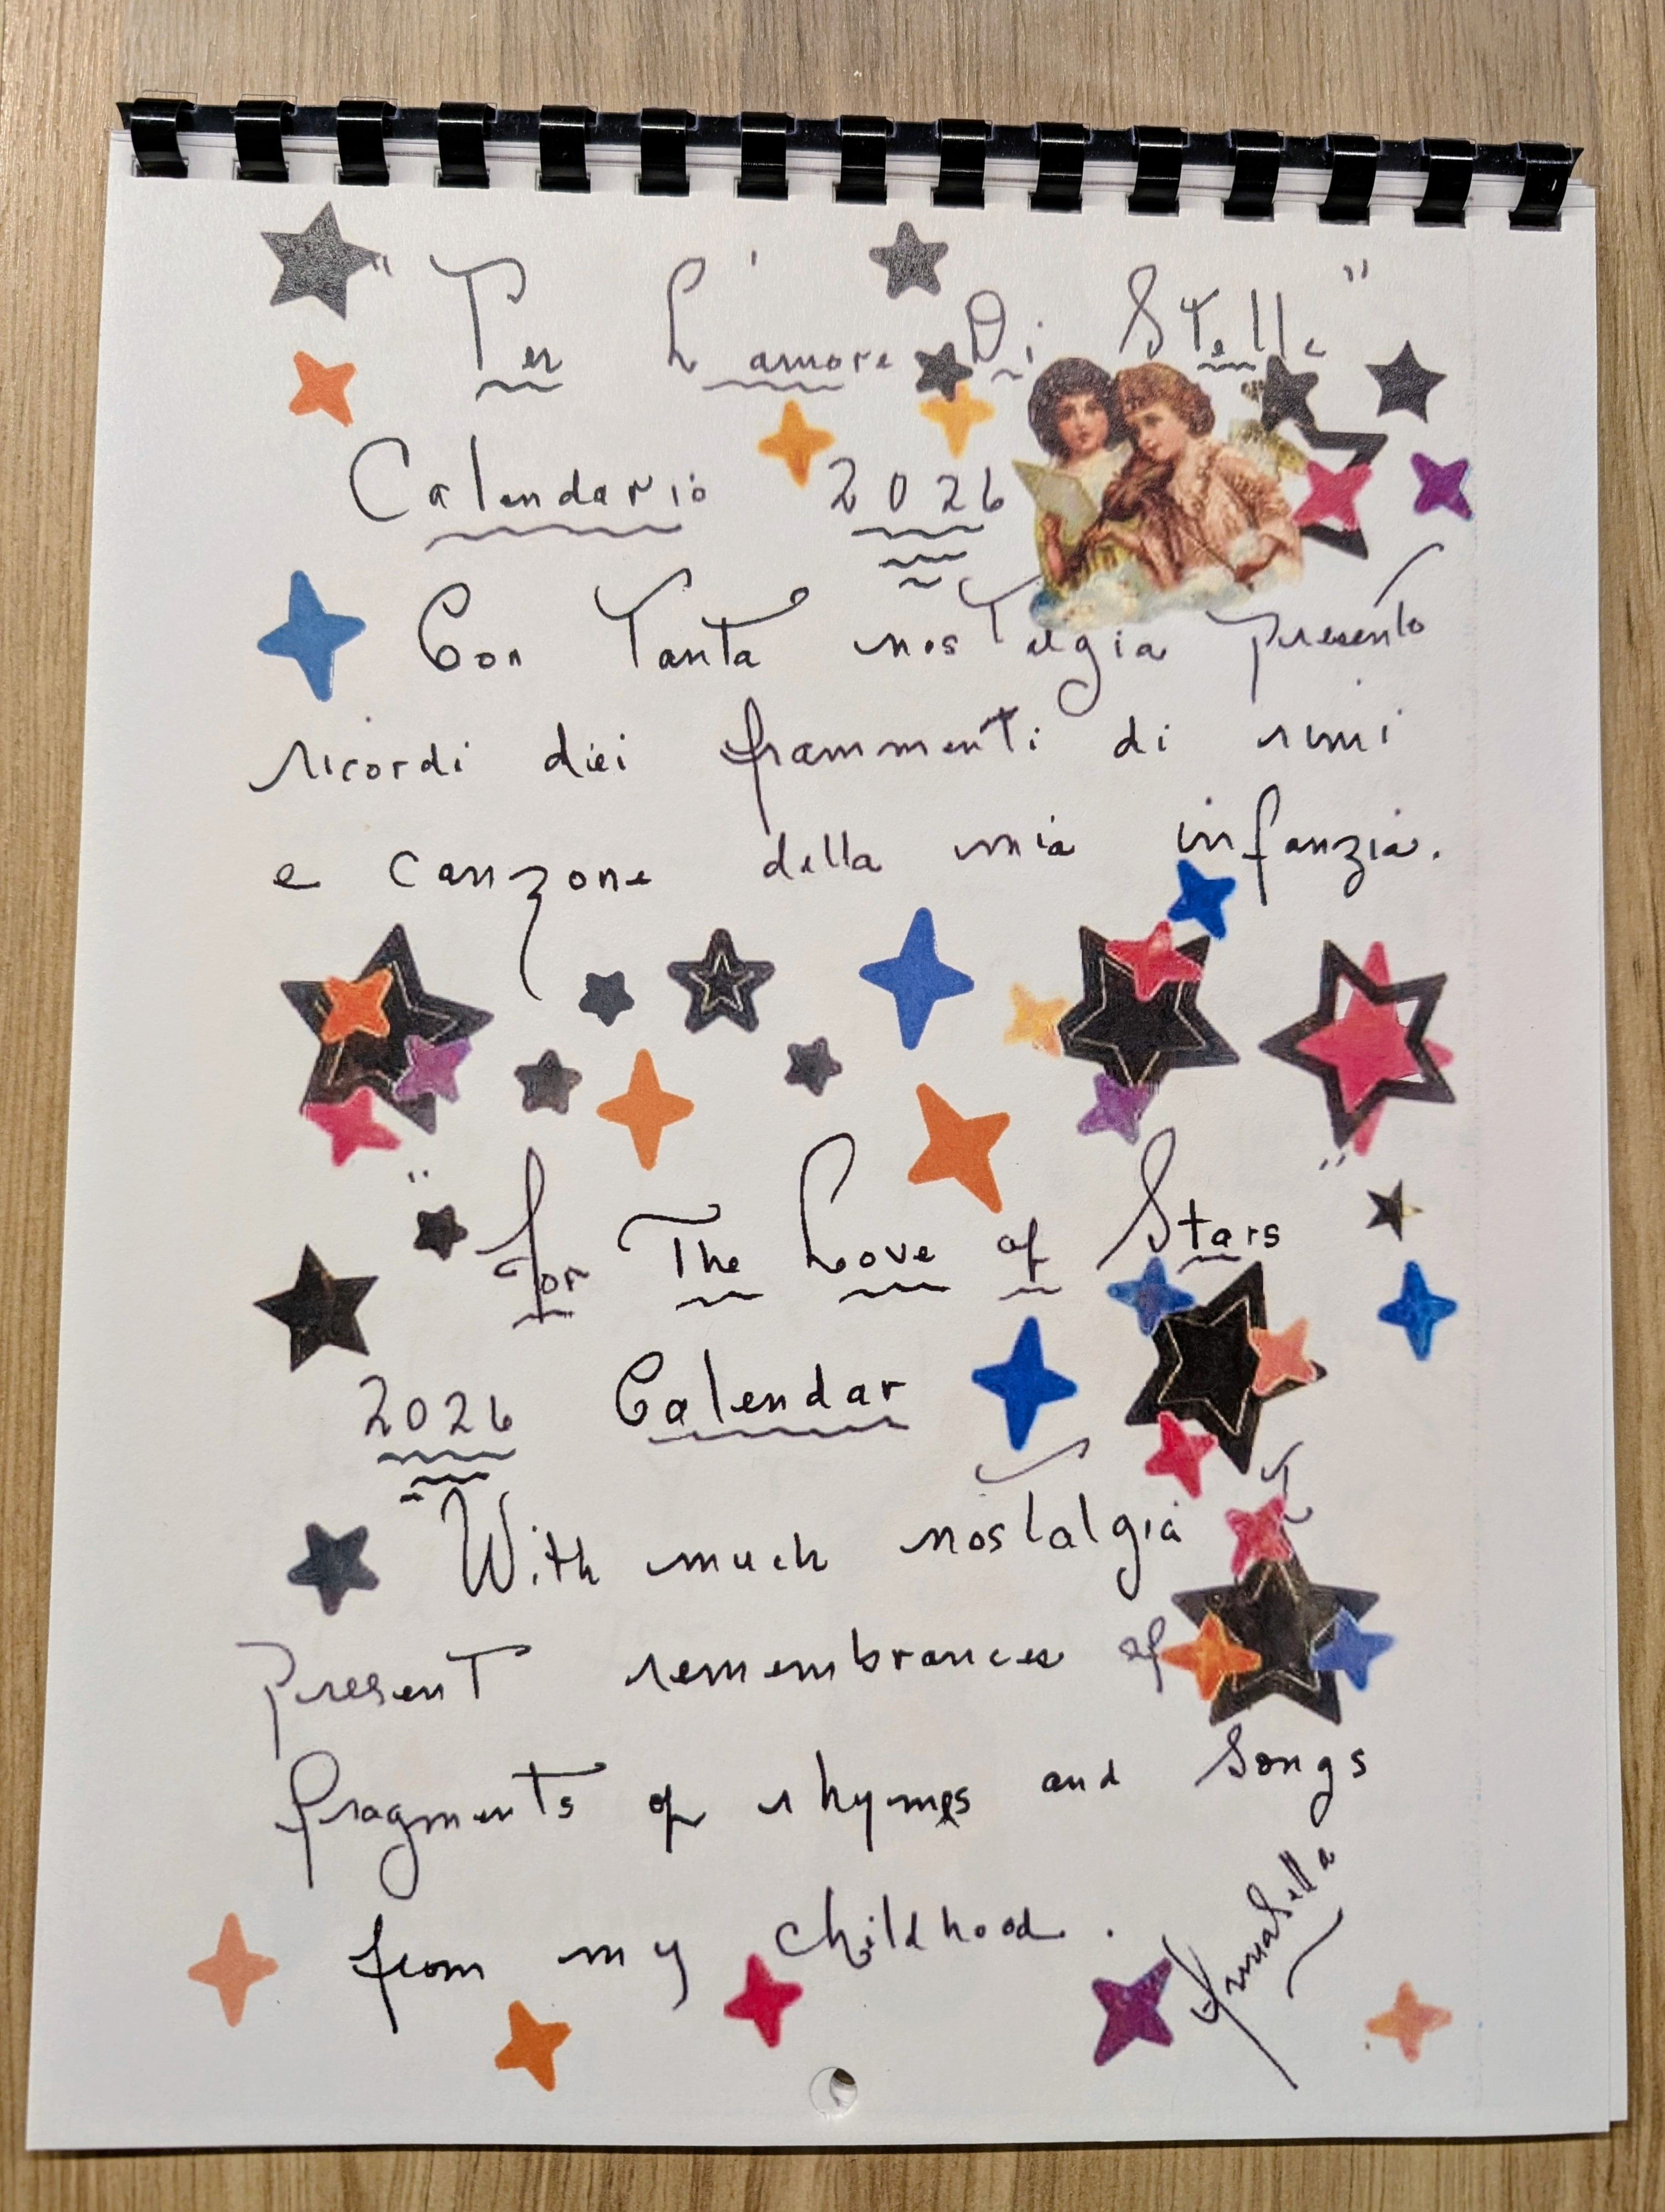 "Per L'amore Di Stelle"
Calendario 2026
Con Tanta nostalgia presento
ricordi diei frammenti di rimi
e canzone della mia infanzia.
"For The Love of Stars"
2026 Calendar
With much nostalgia I
present remembrances of
fragments of rhymes and songs
from my childhood.
AnnaBella